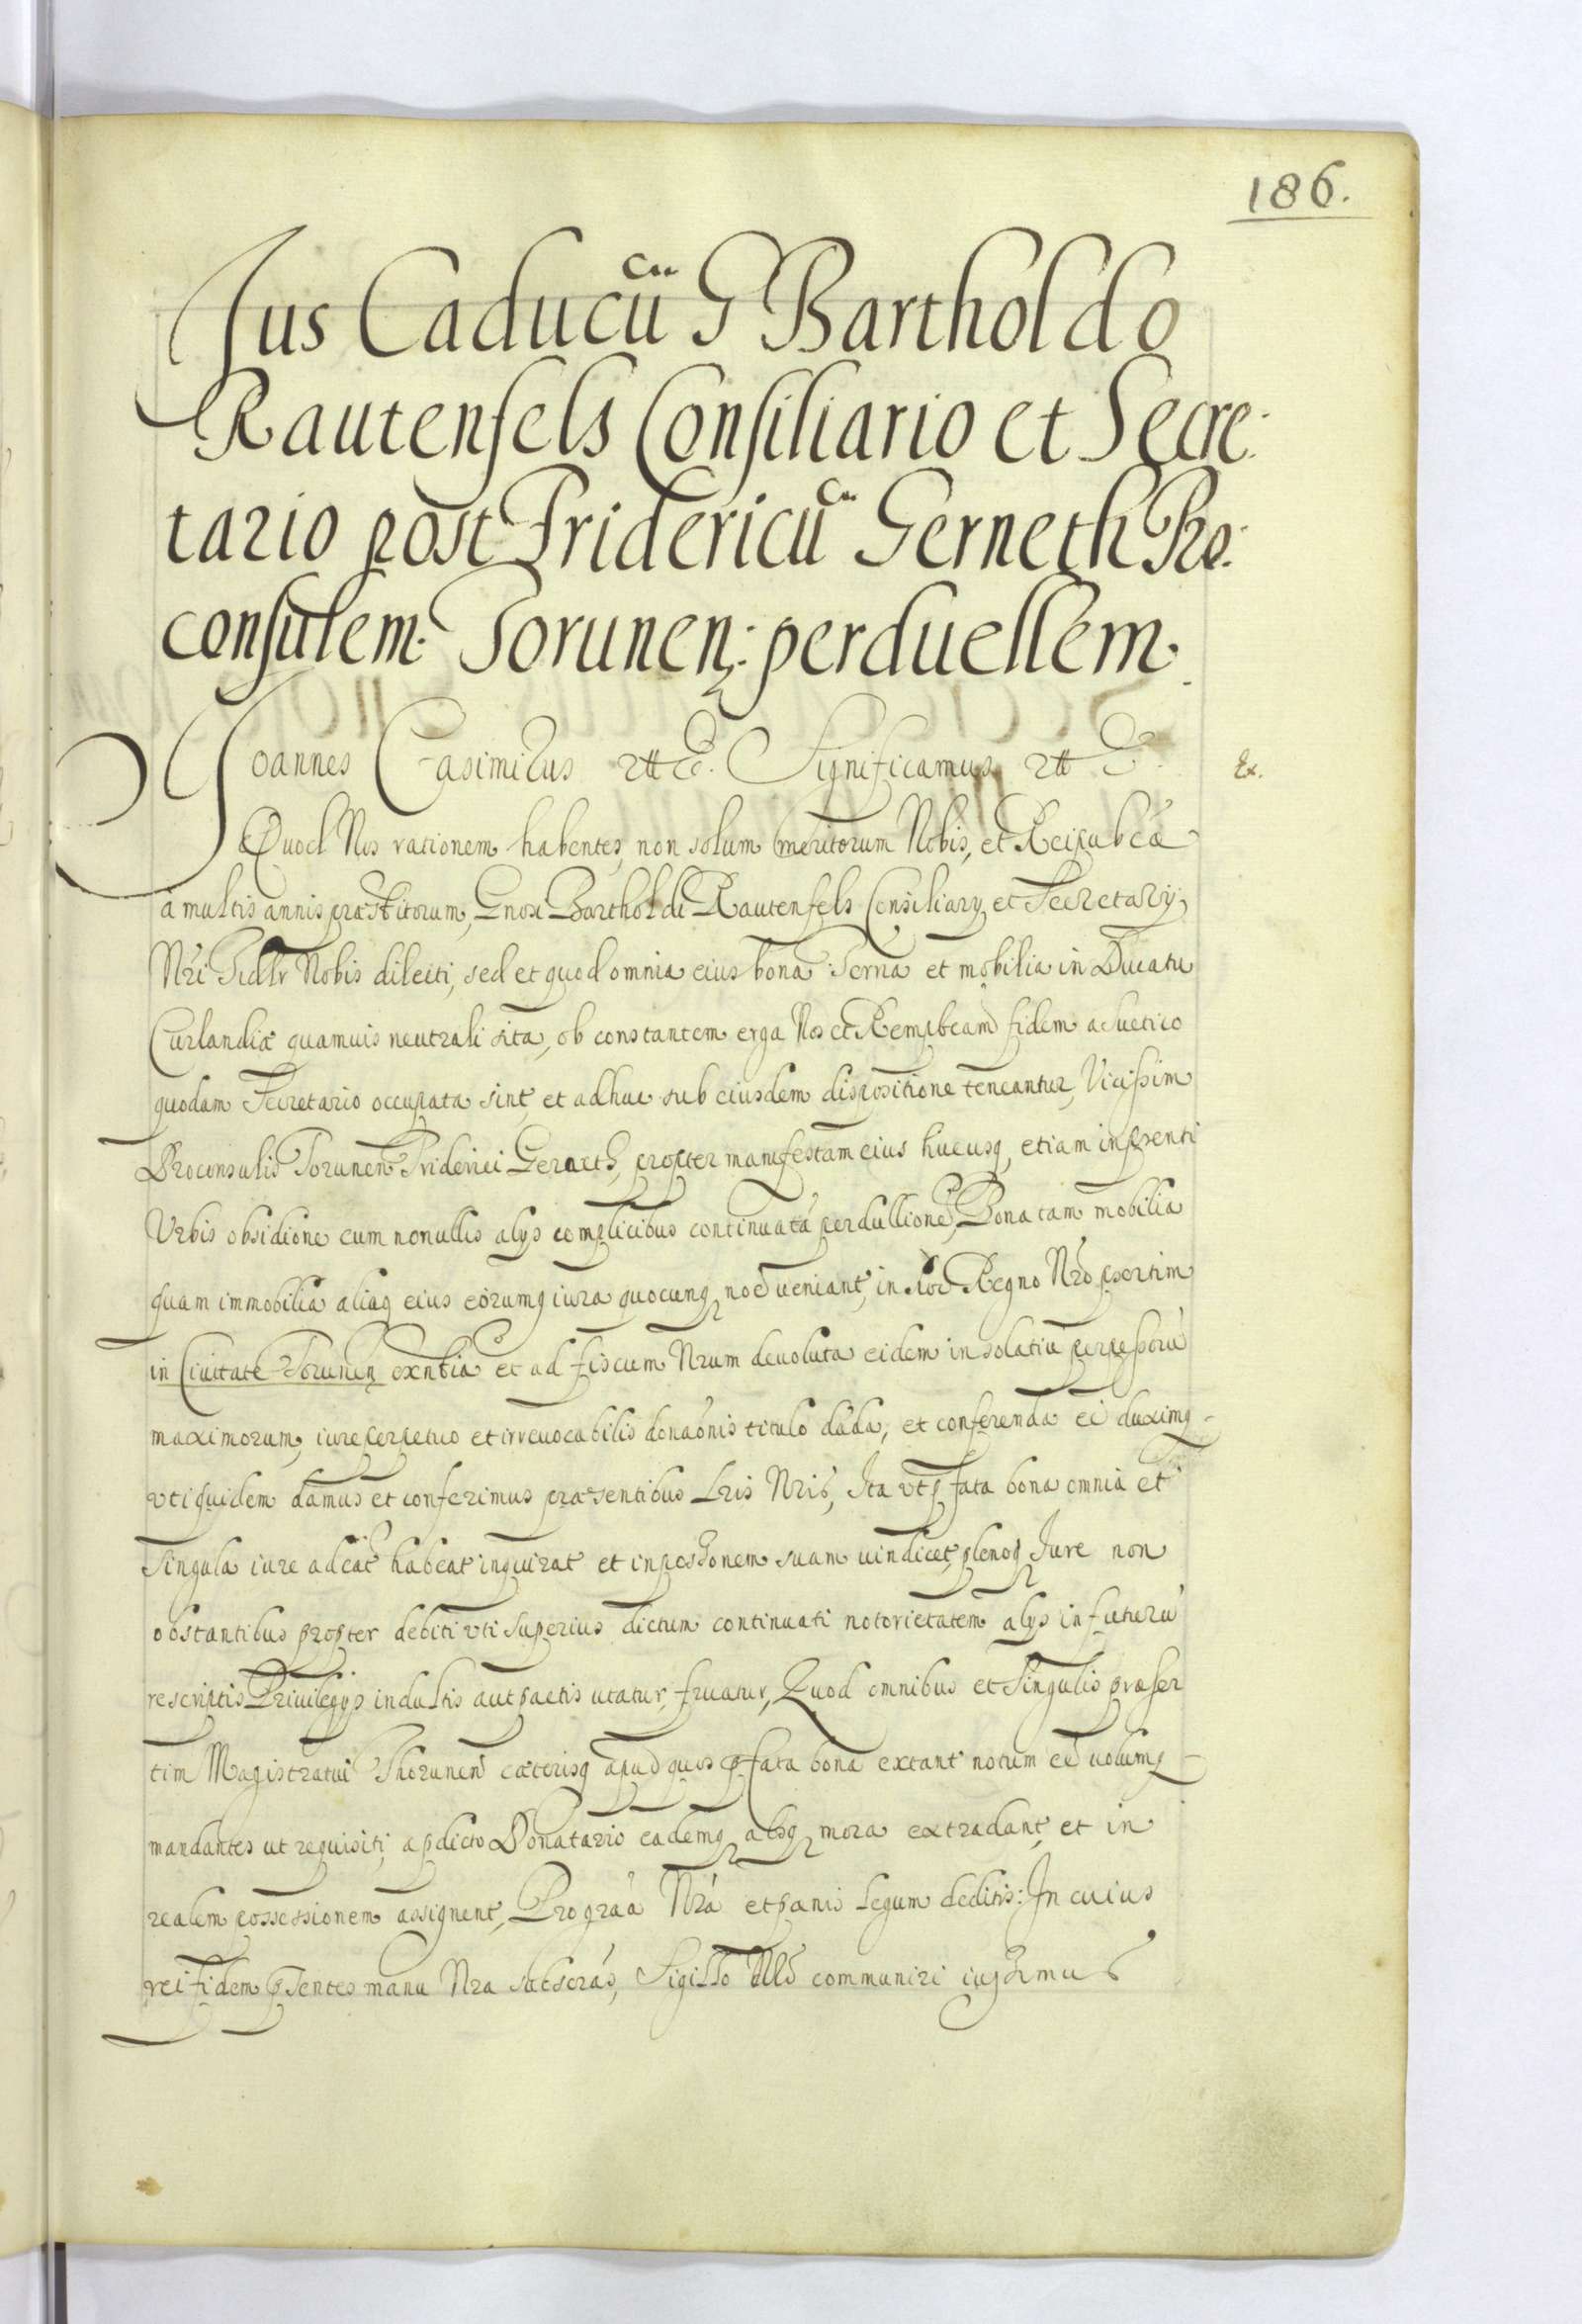 186.
Jus Caducũ G Bartholdo
Rautenfels Consiliario et Secre:
tario post Fridericũ Gerneth Pro:
consulem Torunen: perduellem.
Joannes Casimirus etc. Significamus etc. Ex.
Quod Nos rationem habentes, non solum meritorum Nobis, et Reipubcæ
a multis annis præstitorum, Gnosi Bartholdi Rautenfels Consiliarÿ et Secretarÿ
Nri Fidlr Nobis dilecti, sed et quod omnia eius bona Terrea et mobilia in Ducatu
Curlandiæ quamuis neutrali sita, ob constantem erga Nos et Rempbcam fidem a Suetico
quodam Secretario occupata sint, et adhuc sub eiusdem dispositione teneantur, Vicissim
Proconsulis Torunen Friderici Gerneth, propter manifestam eius hucusq, etiam in psenti
Vrbis obsidione cum nonullis alÿs complicibus continuatá perdullione, Bona tam mobilia
quam immobilia aliaq eius eorumq iura quocunq noe ueniant, in Regno Nro psertim
in Ciuitate Torunen exntia et ad fiscum Nrum deuoluta eidem in solatiũ perpessorũ
maximorum, iure perpetuo et irreuocabilis donaonis titulo dáda, et conferenda eẽ duximq
vti quidem damus et conferimus præsentibus Lris Nris, Ita vt pfata bona omnia et
singula iure adeat habeat inquirat et in possionem suam uindicet, plenoq Jure non
obstantibus propter debiti vti superius dictum continuati notorietatem alÿs in futurũ
rescriptis Priuilegÿs indultis aut pactis utatur, fruatur, Quod omnibus et Singulis præser
tim Magistratui Thorunen cæterisq apud quos pfata bona extant notum eẽ uolumq
mandantes ut requisiti, a pdicto Donatario eademq absq mora extradant, et in
realem possessionem assignent, Pro graa Nra et pænis Legum deditis: In cuius
rei fidem psentes manu Nra subscras, Sigillo communiri iussimus